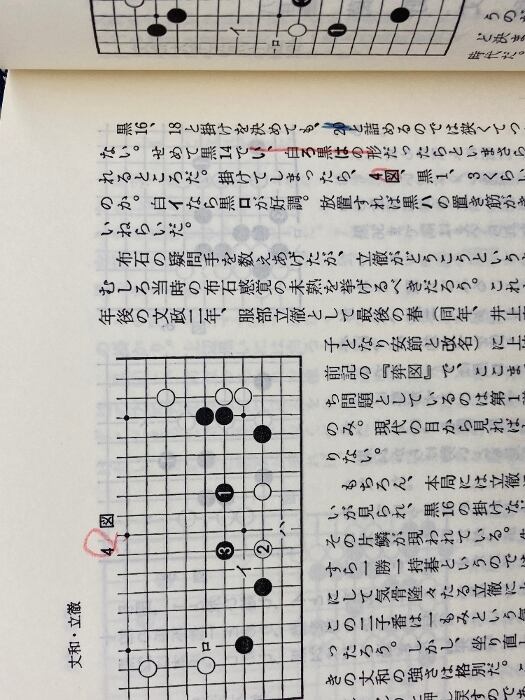 イ
ロ
1
時代だ。
黒16、18と掛けを決めても、20と詰めるのでは狭くてつ
ない。せめて黒14でい、白ろ黒はの形だったらといまさら
れるところだ。掛けてしまったら、4図、黒1、3くらい
のか。白イなら黒ロが好調。放置すれば黒ハの置き筋がき
いねらいだ。
布石の疑問手を数えあげたが、立徹がどうこうという
むしろ当時の布石感覚の未熟を挙げるべきだろう。これ
年後の文政二年、服部立徹として最後の春(同年、井上
子となり安節と改名)に上
前記の『弈図』で、ここま
ち問題としているのは第1
のみ。現代の目から見れば
りない。
もちろん、本局には立徹
いが見られ、黒16の掛けな
その片鱗が現われている。
すら一勝一持碁というのでは
にして気骨隆々たる立徹に
この二子番は一もみという気
ったろう。しかし、坐り直
きの丈和の強さは格別だ。
4図
1
3
2
イ
ロ
ハ
丈和・立徹